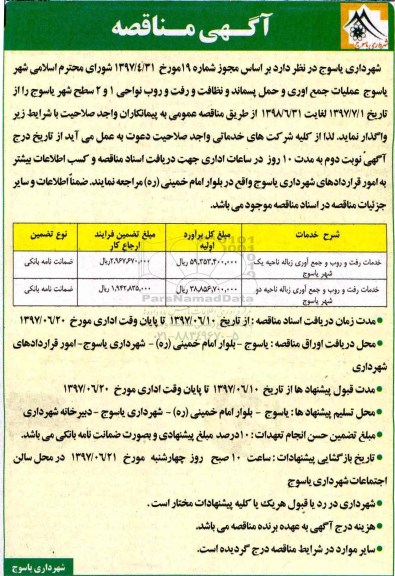 آگهی مناقصه
شهرداری یاسوج
شهرداری یاسوج در نظر دارد بر اساس مجوز شماره ۱۹مورخ ۱۳۹۷/۴/۳۱ شورای محترم اسلامی شهر
یاسوج عملیات جمع اوری و حمل پسماند و نظافت و رفت و روب نواحی ۱ و ۲ سطح شهر یاسوج را از
تاریخ ۱۳۹۷/۷/۱ لغایت ۱۳۹۸/۶/۳۱ از طریق مناقصه عمومی به پیمانکاران واجد صلاحیت با شرایط زیر
واگذار نماید. لذا از کلیه شرکت های خدماتی واجد صلاحیت دعوت به عمل می آید از تاریخ درج
آگهی نوبت دوم به مدت ۱۰ روز در ساعات اداری جهت دریافت اسناد مناقصه و کسب اطلاعات بیشتر
به امور قراردادهای شهرداری یاسوج واقع در بلوار امام خمینی (ره) مراجعه نمایند. ضمناً اطلاعات و سایر
جزئیات مناقصه در اسناد مناقصه موجود می باشد.
شرح خدمات | مبلغ کل براورد اولیه | مبلغ تضمین فرایند ارجاع کار | نوع تضمین
خدمات رفت و روب و جمع آوری زباله ناحیه یک شهر یاسوج | ۵۹,۳۵۳,۴۰۰,۰۰۰ ریال | ۲,۹۶۷,۶۷۰,۰۰۰ریال | ضمانت نامه بانکی
خدمات رفت و روب و جمع آوری زباله ناحیه دو شهر یاسوج | ۳۸,۸۵۶,۷۰۰,۰۰۰ ریال | ۱,۹۴۲,۸۳۵,۰۰۰ ریال | ضمانت نامه بانکی
● مدت زمان دریافت اسناد مناقصه : از تاریخ ۱۳۹۷/۰۶/۱۰ تا پایان وقت اداری مورخ ۱۳۹۷/۰۶/۲۰
● محل دریافت اوراق مناقصه : یاسوج - بلوار امام خمینی (ره) - شهرداری یاسوج- امور قراردادهای
شهرداری
● مدت قبول پیشنهاد ها از تاریخ ۱۳۹۷/۰۶/۱۰ تا پایان وقت اداری مورخ ۱۳۹۷/۰۶/۲۰
● محل تسلیم پیشنهاد ها : یاسوج - بلوار امام خمینی (ره) - شهرداری یاسوج -دبیرخانه شهرداری
● مبلغ تضمین حسن انجام تعهدات : ۱۰درصد مبلغ پیشنهادی و بصورت ضمانت نامه بانکی می باشد.
● تاریخ بازگشایی پیشنهادات : ساعت ۱۰ صبح روز چهارشنبه مورخ ۱۳۹۷/۰۶/۲۱ در محل سالن
اجتماعات شهرداری یاسوج
● شهرداری در رد یا قبول هریک یا کلیه پیشنهادات مختار است .
● هزینه درج آگهی به عهده برنده مناقصه می باشد.
● سایر موارد در شرایط مناقصه درج گردیده است.
شهرداری یاسوج